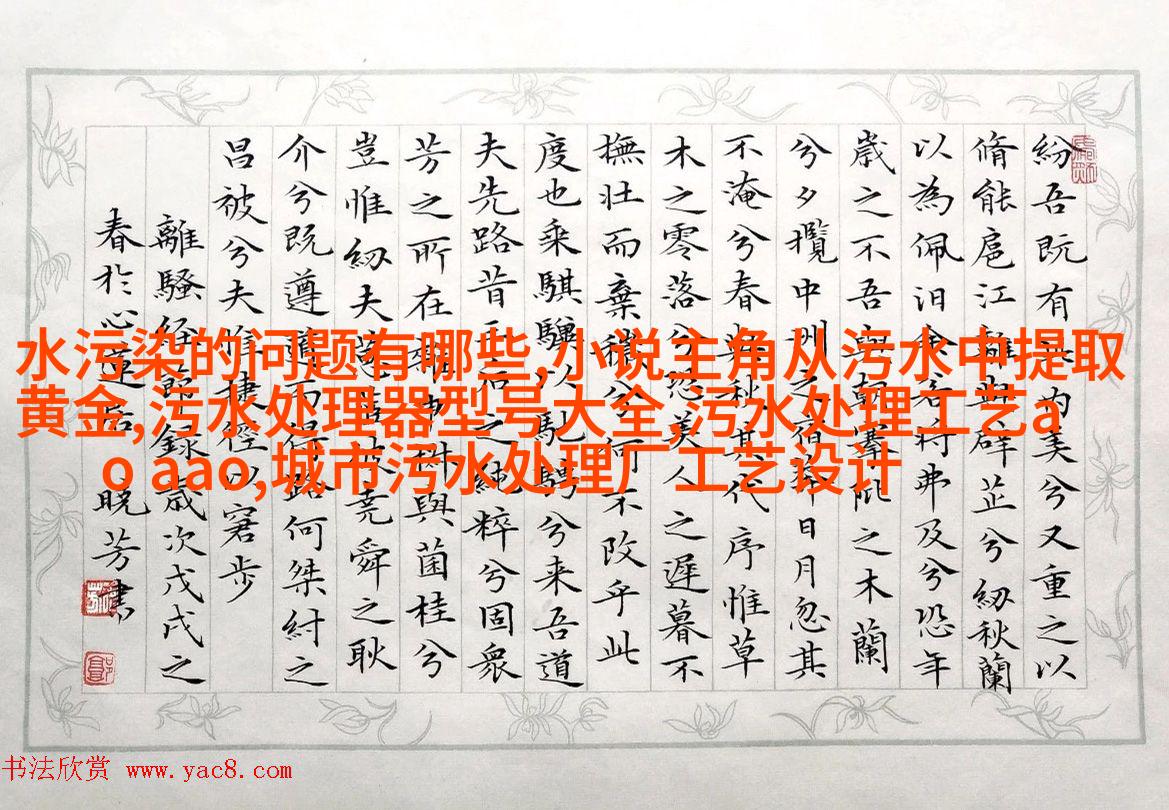 水污染的问题有哪些,小说主角从污水中提取
黄金,污水处理器型号大全,污水处理工艺a
o aao,城市污水处理厂工艺设计
紛吾既有美兮又重之以
脩能扈江離與辟芷兮紉秋蘭
以為佩汩余若將弗及兮恐年
歲之不吾與朝搴阰之木蘭
兮夕攬中州之宿莽日月忽其
不淹兮春與秋其代序惟草
木之零落兮恐美人之遲暮不
撫壯而棄穢兮何不改乎此
度也乘騏驥以馳騁兮来吾道
夫先路昔三后之純粹兮固衆
芳之所在雜申椒與菌桂兮
豈惟紉夫蕙茝堯舜之耿
介兮既遵道而得路何桀紂之
昌被兮夫唯捷徑以窘步
離騷經節錄歲次戊戌之
春於心曉芳書
书法欣赏 www.yac8.com